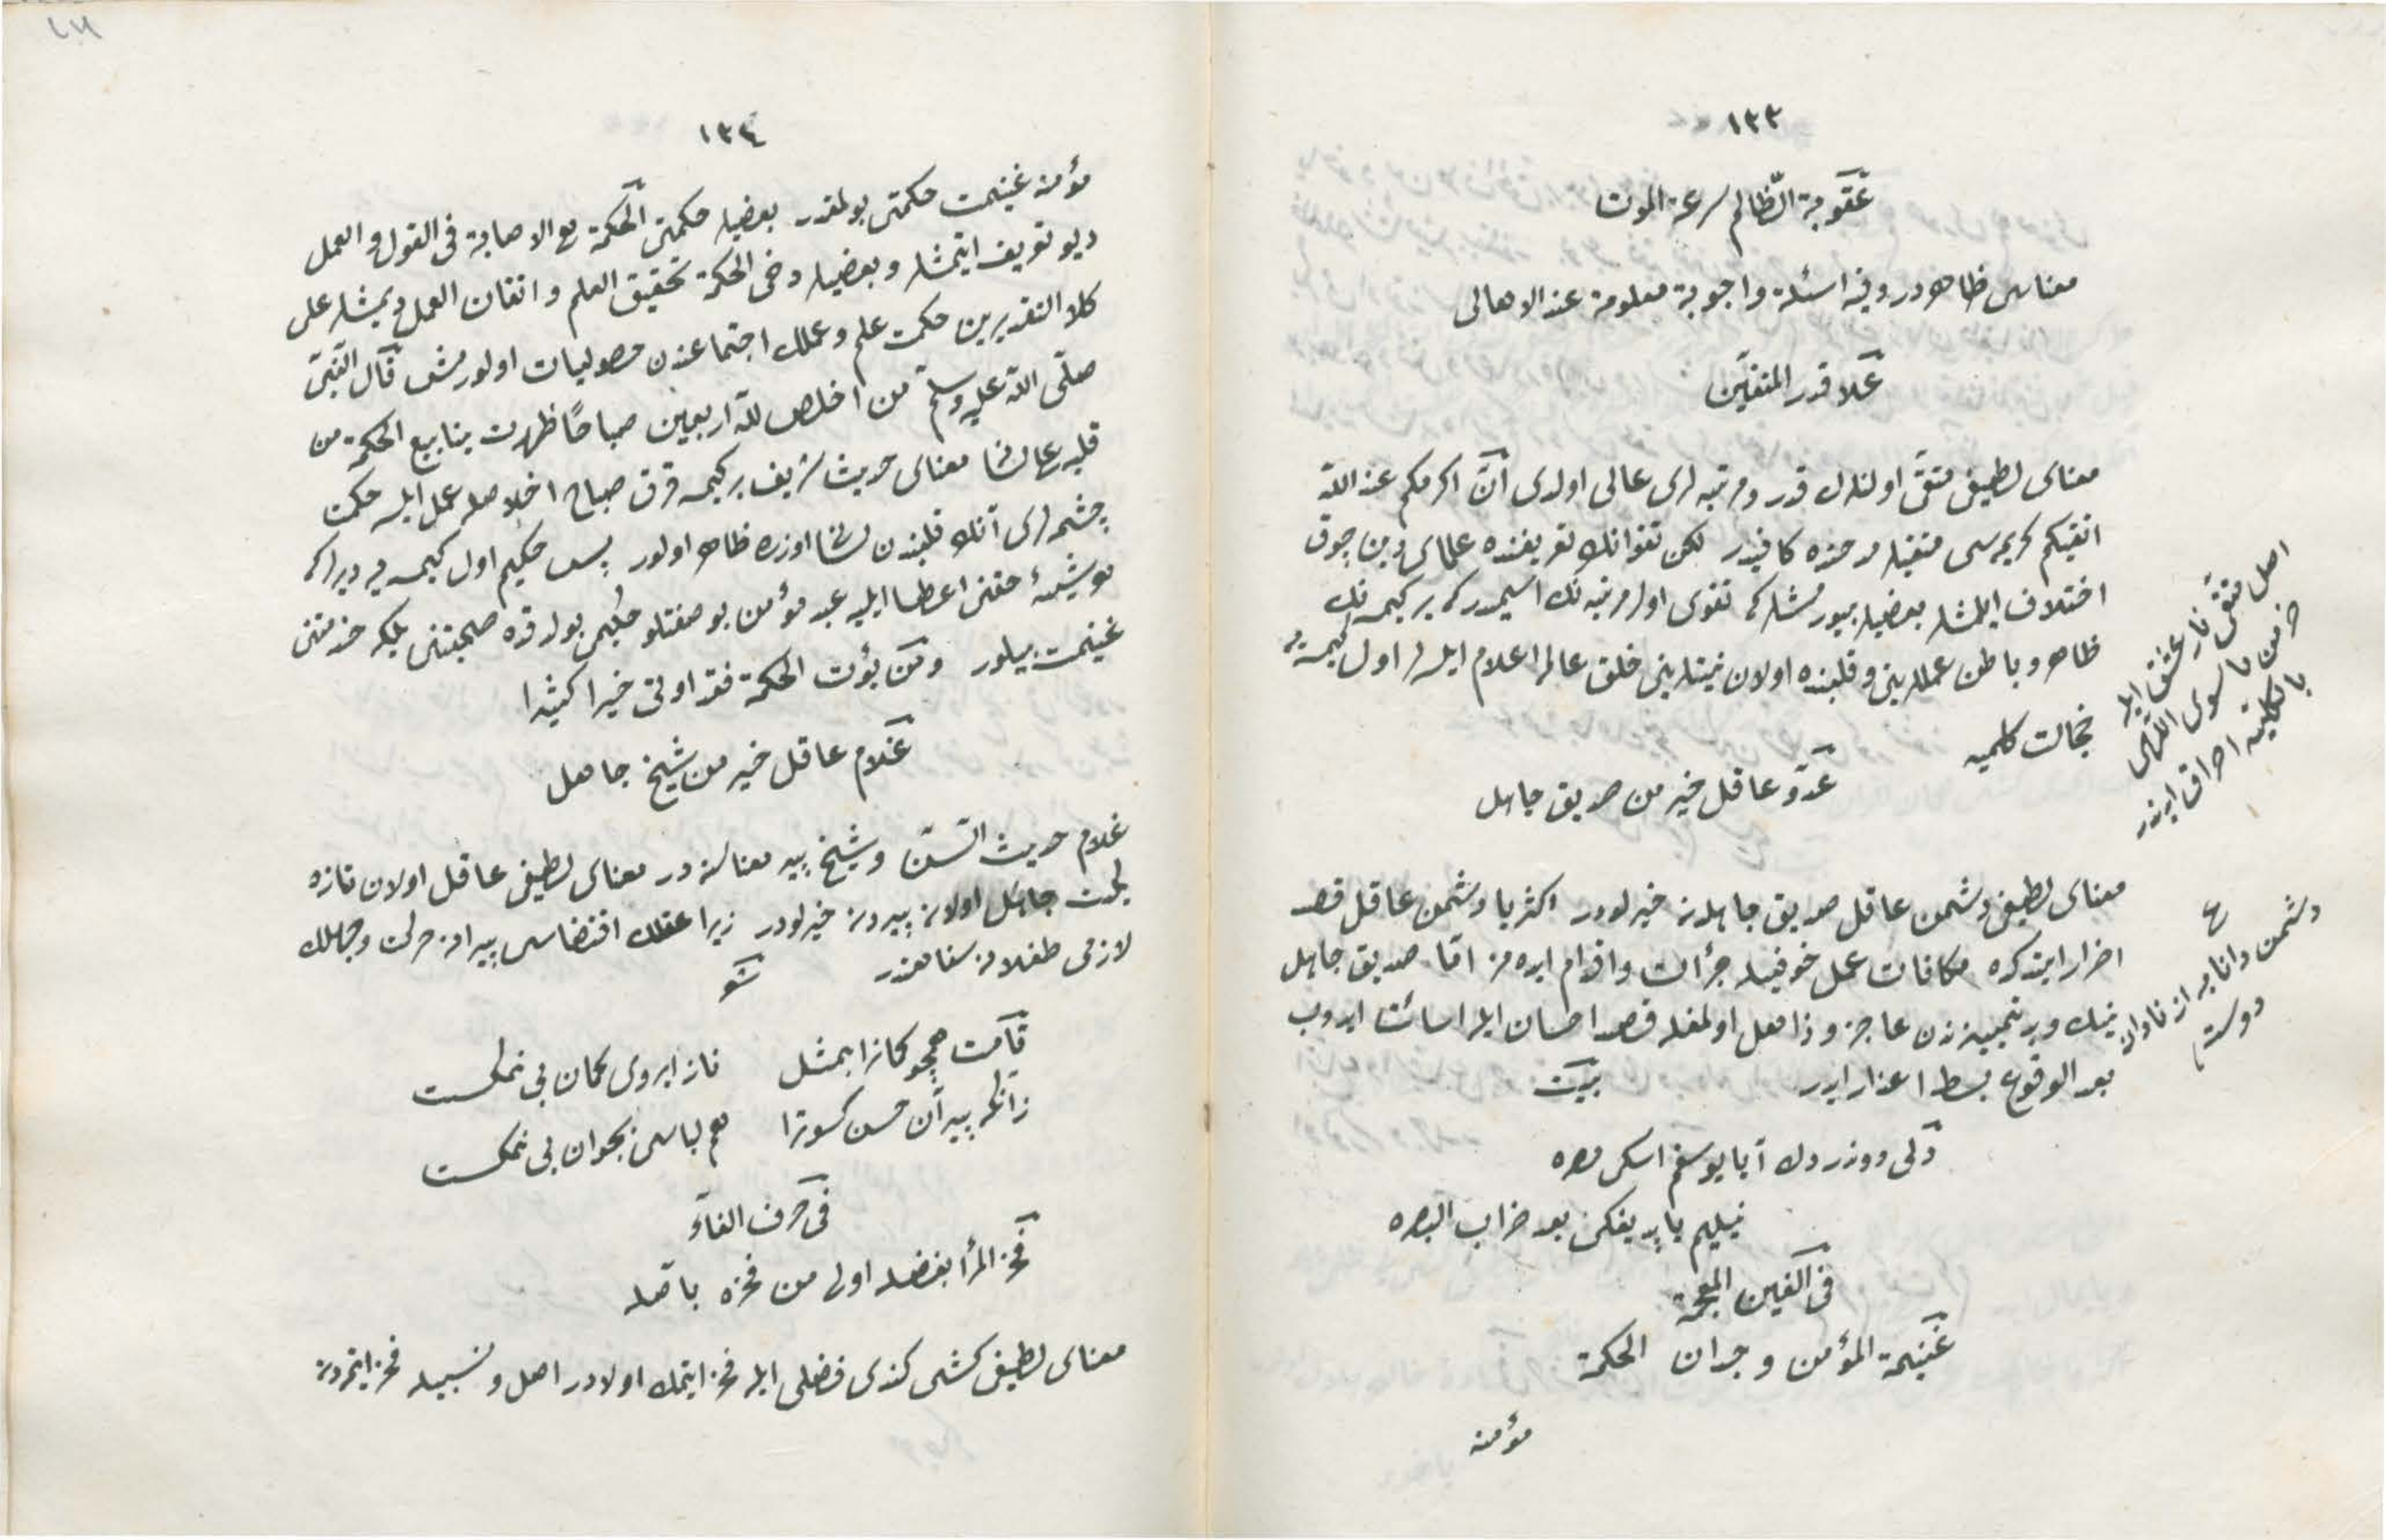 ١٣٣
عقوبة الظالم سرعة الموت
معناسی ظاهردر وفیه اسئلة واجوبة معلومة عند الاهالی
علا قدر المتقین
معنای لطیفی متقی اولنلرك قدر ومرتبه لری عالی اولدی ان اكرمكم عند الله
اتقیكم كریمه سی متقیلر مدحنده كافیدر لكن تقوانك تعریفنده علمای دین چوق
اختلاف ایلمشلر بعضیلر بیورمشلر كه تقوی اول مرتبه نك اسمیدر كه بر كیمسه نك
ظاهر وباطن عمللرینی وقلبنده اولان نیتلرینی خلق عالمه اعلام ایلسلر اول كیمسه یه
خجالت كلمیه
اصل متقی نار عشق ایله
خرمن ما سوی اللهی
بالكلیه احراق ایدندر
عدو عاقل خیر من صدیق جاهل
معنای لطیفی دشمن عاقل صدیق جاهلدن خیرلودر اكثریا دشمن عاقل قصد
اضرار ایتدكده مكافات عمل خوفیله جرأت واقدام ایده مز اما صدیق جاهل
نیك وبد تمییزندن عاجز وذاهل اولمغله قصد احسان ایله اسائت ایدوب
بعد الوقوع بسط اعذار ایدر بیت
ع
دشمن دانا به از نادان
دوست
دلی دوندردك آیا یوسفم اسكی مصره
نیلیم یا پدیغكی بعد خراب البصره
فی الغین المعجمة
غنیمة المؤمن وجدان الحكمة
مؤمنه
١٣٤
مؤمنه غنیمت حكمتی بولمقدر بعضیلر حكمتی الحكمة هی الاصابة فی القول والعمل
دیو تعریف ایتمشلر وبعضیلر دخی الحكمة تحقیق العلم واتقان العمل دیمشلر علی
كلا التقدیرین حكمت علم وعملك اجتماعندن حصولیات اولورمش قال النبی
صلی الله علیه وسلم من اخلص لله اربعین صباحا ظهرت ینابیع الحكمة من
قلبه علی لسانه معنای حدیث شریف بر كیمسه قرق صباح اخلاصله عمل ایلسه حكمت
چشمه لری آنك قلبندن لسانی اوزره ظاهر اولور پس حكیم اول كیمسه یه دیرلر كه
هر شیئه حقنی اعطا ایلیه عبد مؤمن بو صفتلو حكیمی بولدقده صحبتنی بلكه خدمتنی
غنیمت بیلور ومن یؤت الحكمة فقد اوتی خیرا كثیرا
غلام عاقل خیر من شیخ جاهل
غلام حدیث السن وشیخ پیر معناسنه در معنای لطیفی عاقل اولان تازه
یكیت جاهل اولان پیردن خیرلودر زیرا عقلك اقتضاسی پیرانه حركت وجهلك
لازمی طفلانه سفاهتدر شعر
قامت همچو كمانرا بمثل ناز ابروی كمان بی نمكست
زانكه پیر آن حسن كسوترا هم لباس جوان بی نمكست
فی حرف الفاء
فخر المرأ بفضله اولی من فخره باصله
معنای لطیفی كشی كندی فضلی ایله فخر ایتمك اولادر اصل ونسبیله فخر ایتمدن